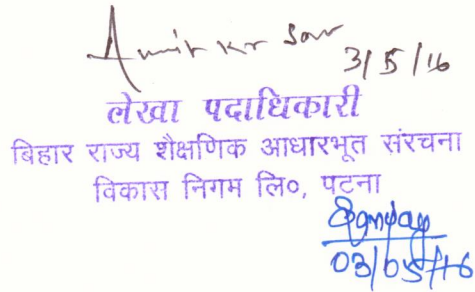 Amit Kr
3/5/16
लेखा पदाधिकारी
बिहार राज्य शैक्षणिक आधारभूत संरचना
विकास निगम लि०, पटना
03/05/16